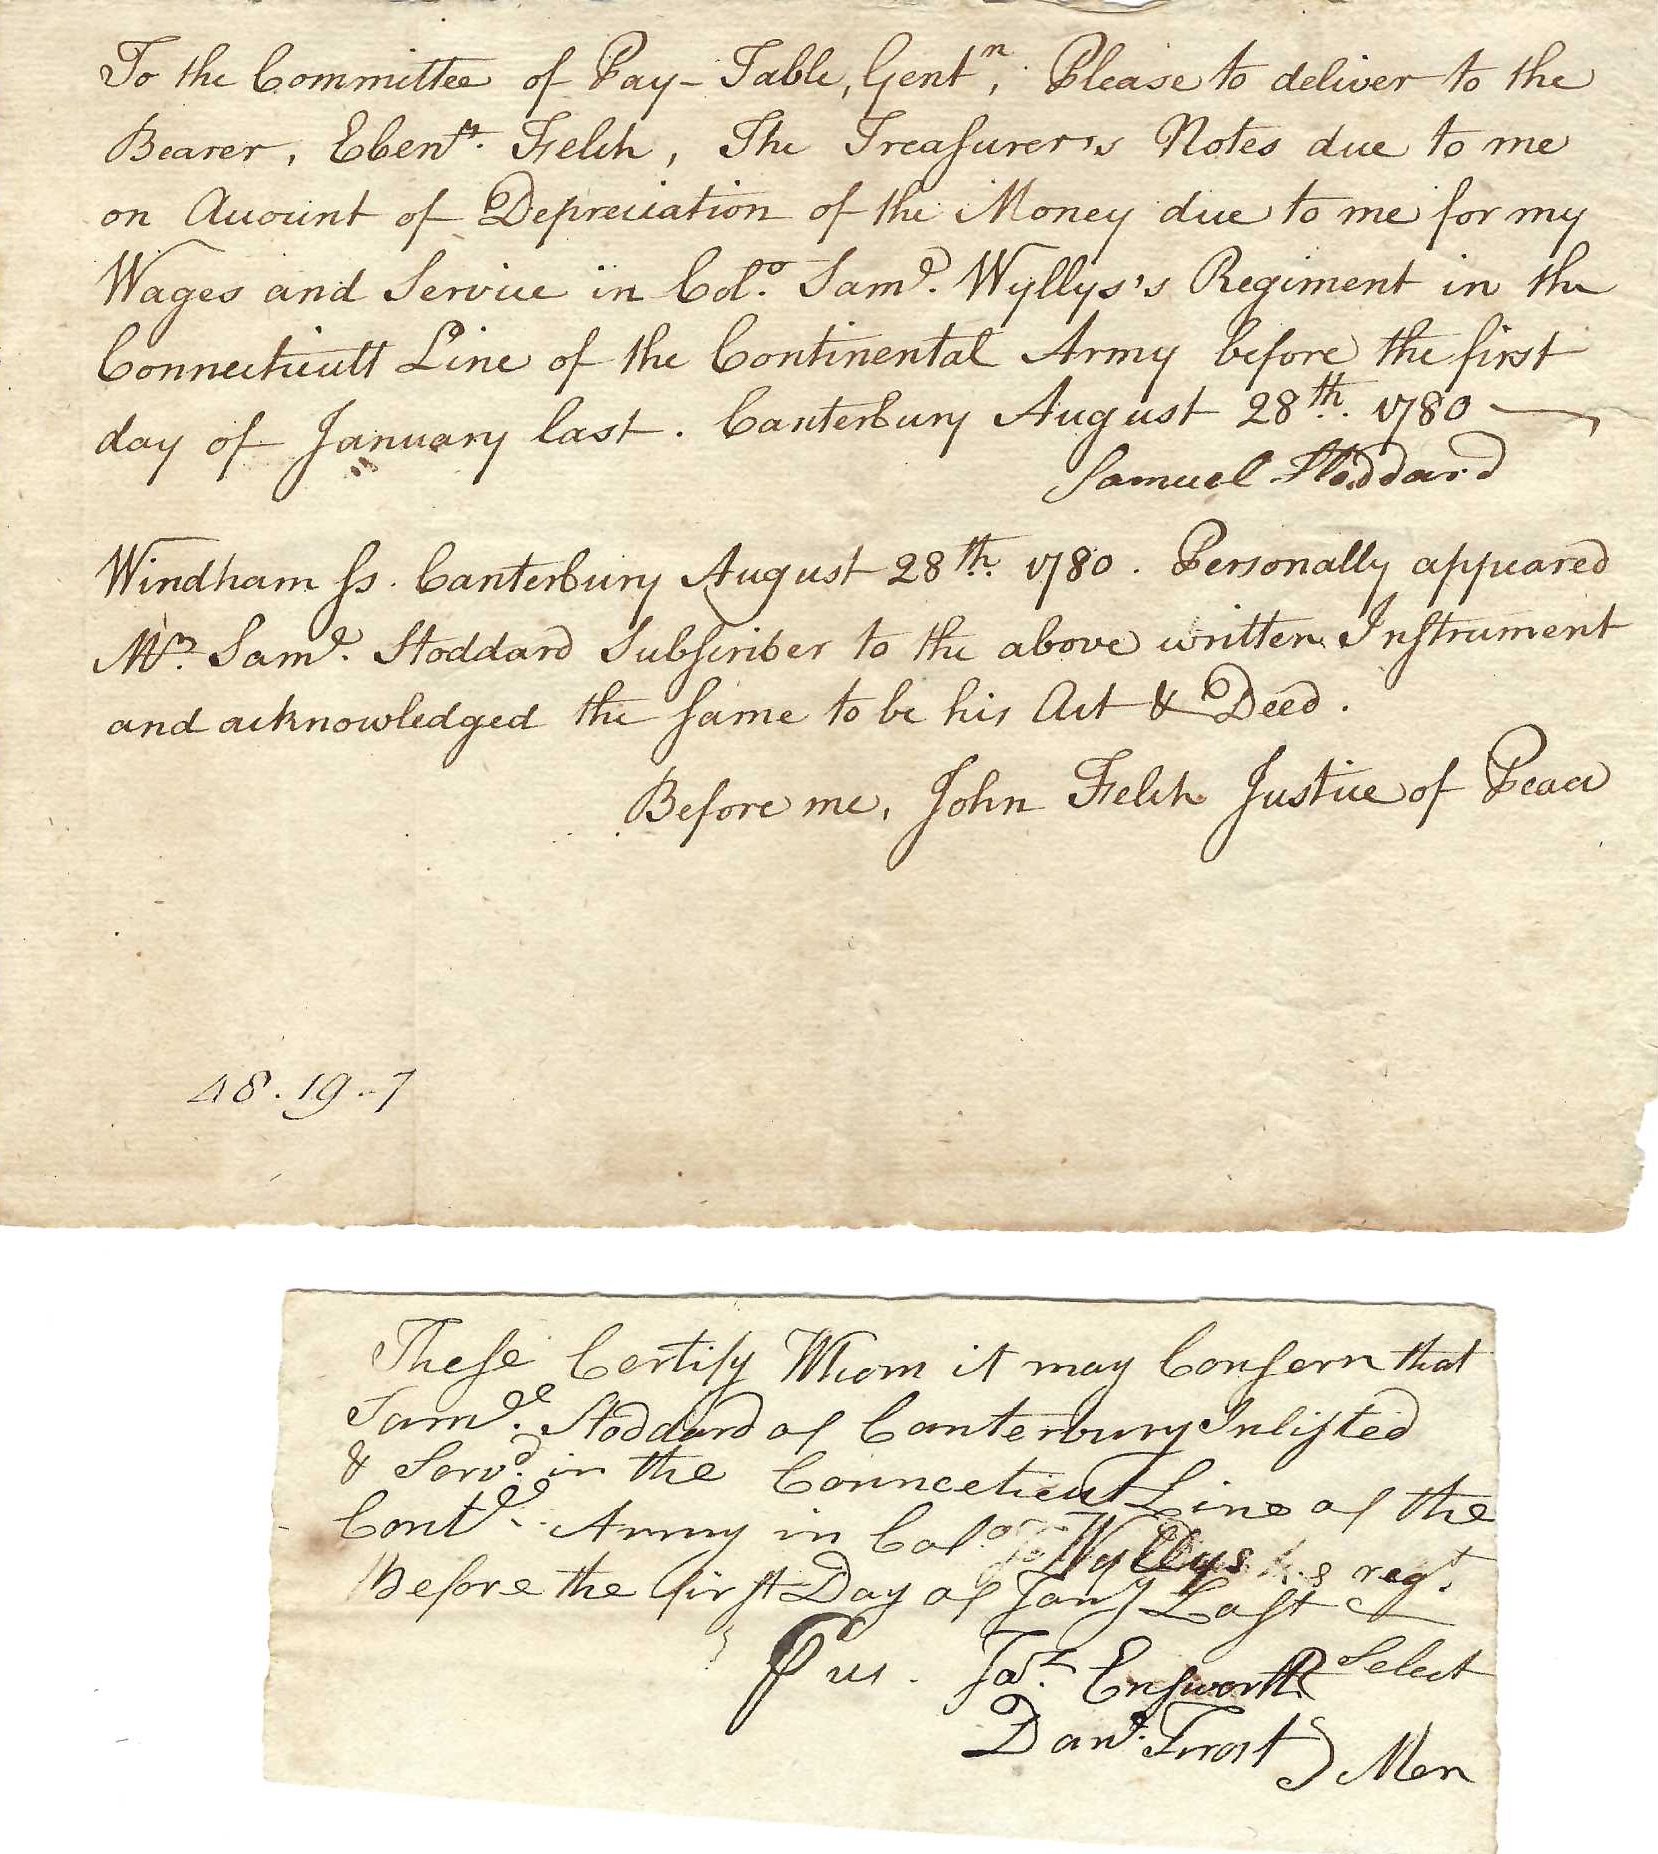 To the Committee of Pay-Table, Gentn, Please to deliver to the
Bearer, Ebenr. Felch, The Treasurer's Notes due to me
on Account of Depreciation of the Money due to me for my
Wages and Service in Colo. Saml. Wyllys's Regiment in the
Connecticutt Line of the Continental Army before the first
day of January last. Canterbury August 28th. 1780
Samuel Stoddard
Windham ss. Canterbury August 28th. 1780. Personally appeared
Mr. Saml. Stoddard Subscriber to the above written Instrument
and acknowledged the same to be his Act & Deed.
Before me, John Felch Justice of Peace
48.19.7
These Certify Whom it may Consern that
Saml. Stoddard of Canterbury Inlisted
& Servd. in the Connecticut Line of the
Contl. Army in Colo. Wyllys regt.
Before the first Day of Jany Last
Pr us. Jas. Ensworth Select
Danl. Frost } Men